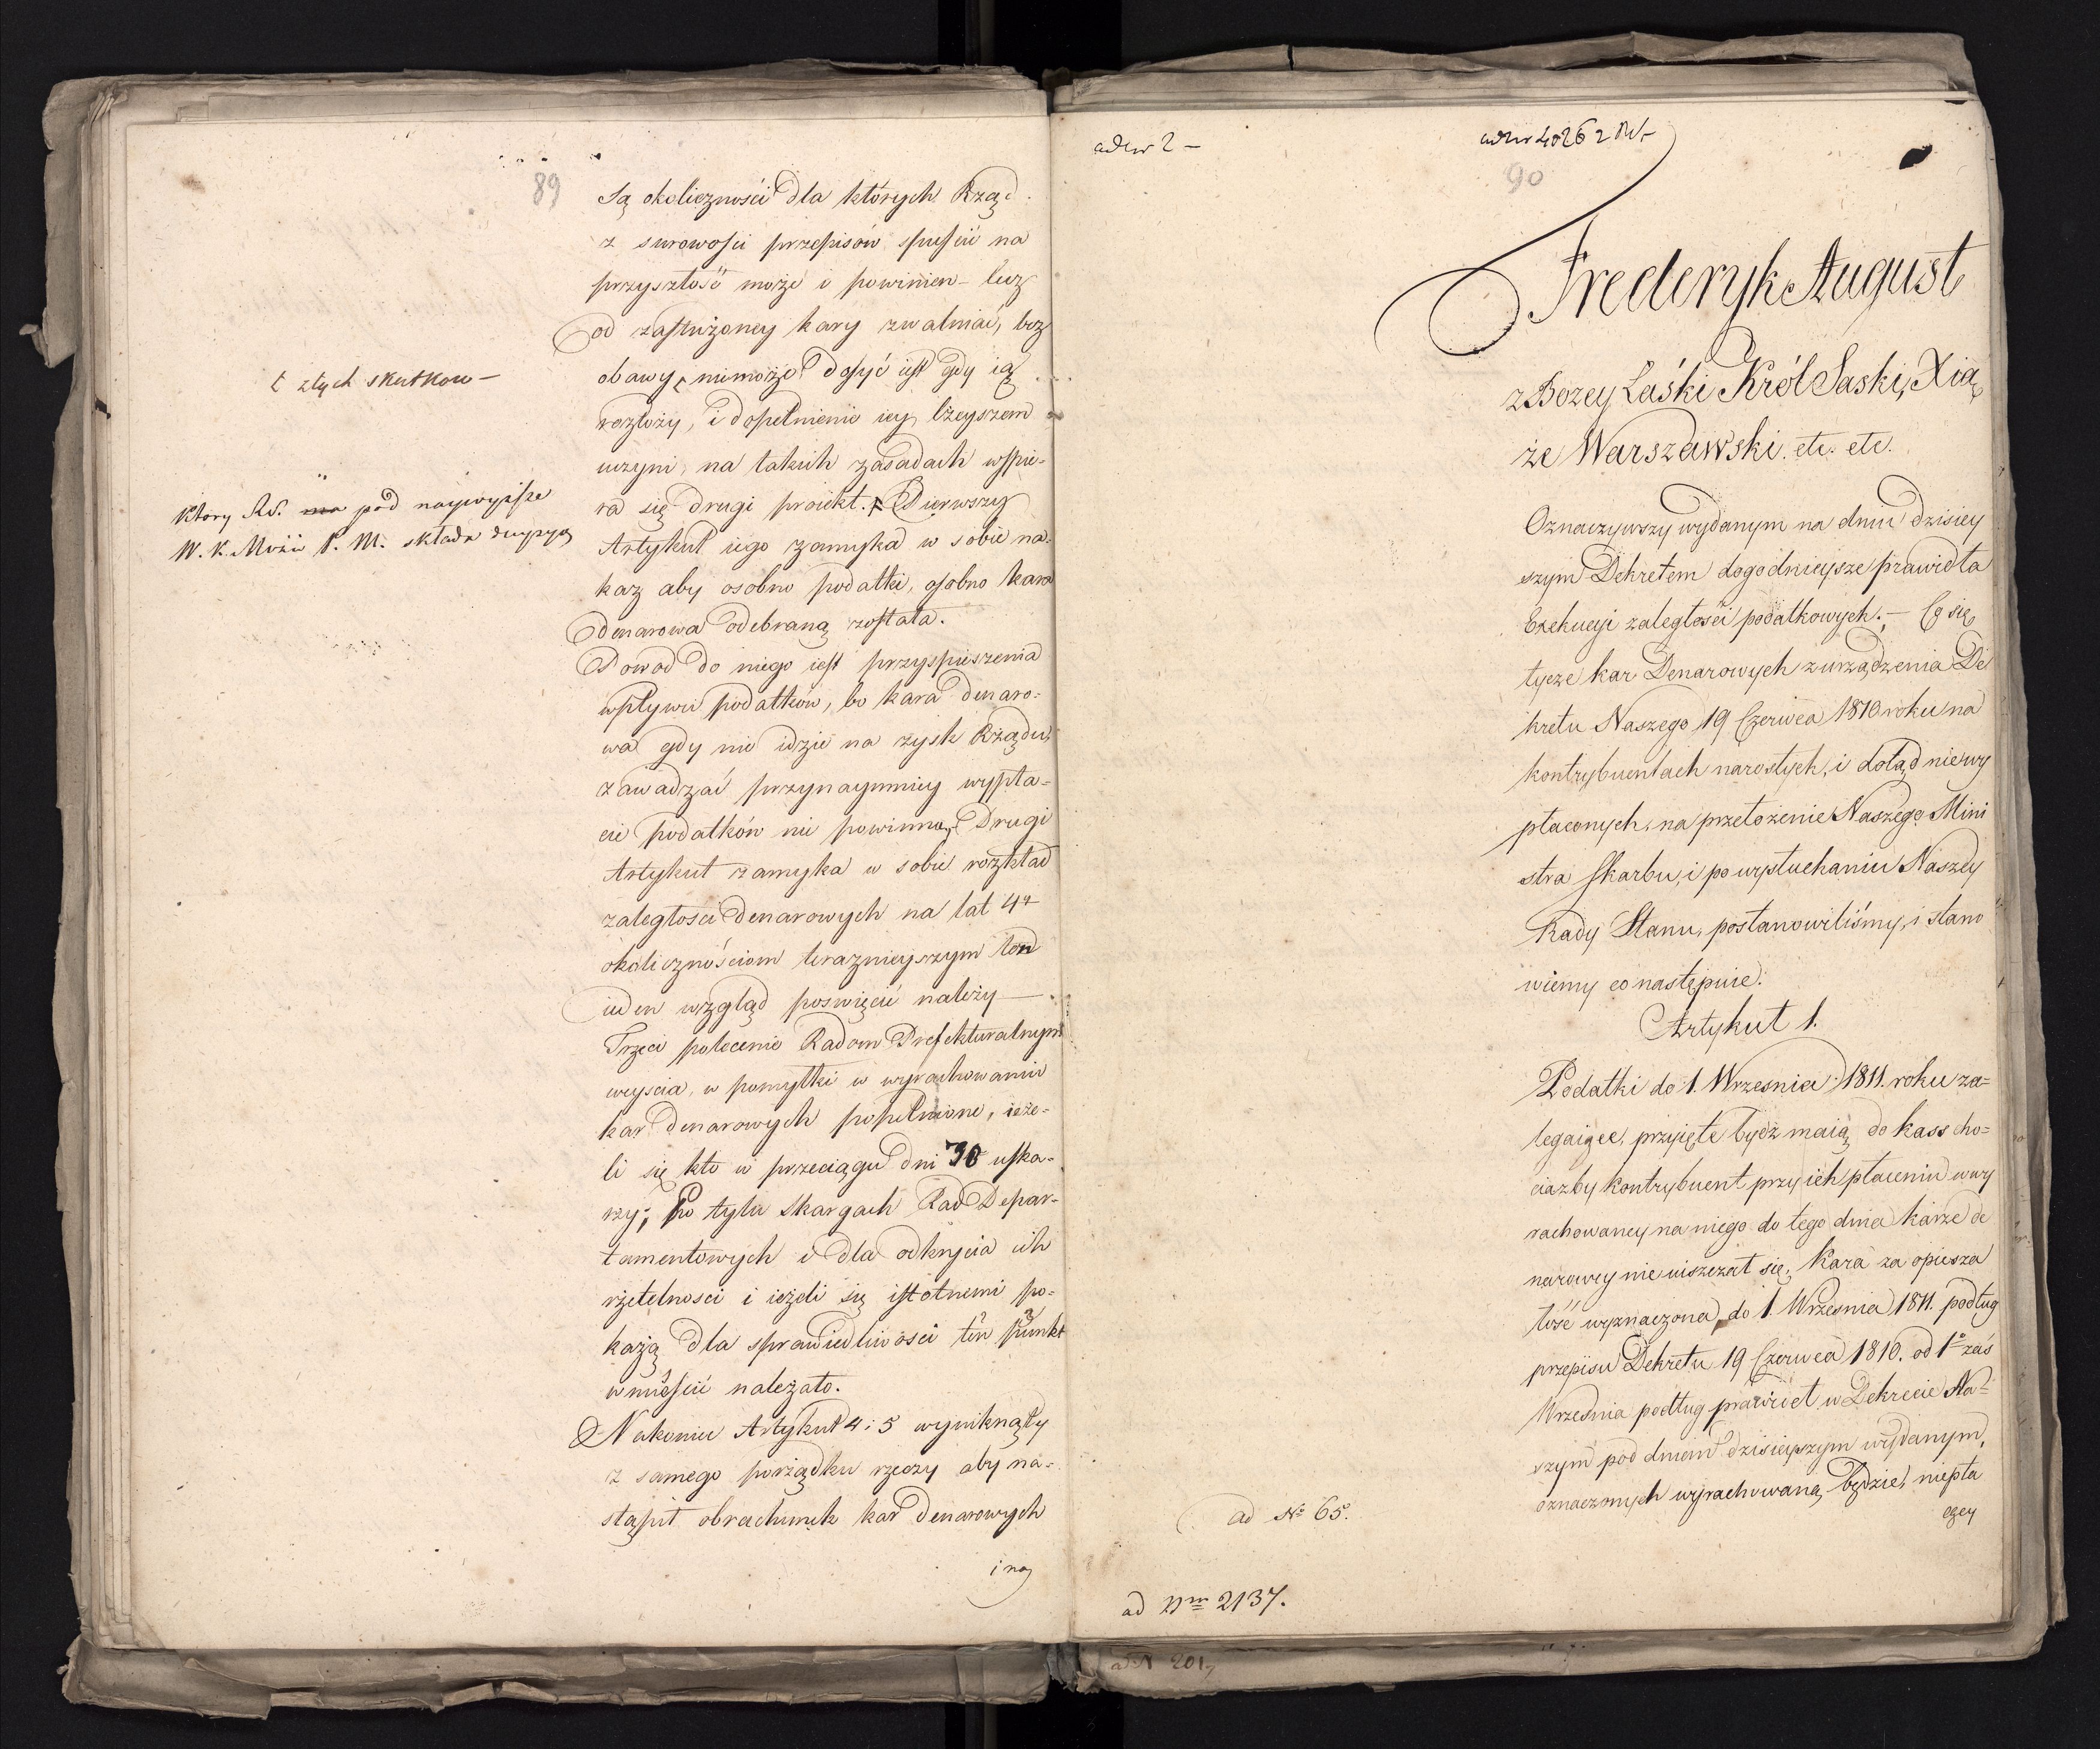 89
Są okoliczności dla których Rząd
z surowości przepisów spuścić na
przyszłość może i powinien – lecz
od zasłużoney kary zwalniać, bez
obawy niemoże dosyć iest gdy ią
t złych skutkow –
rozłoży, i dopełnienie iey lżeyszem
uczyni, na takich zasadach wspie-
ra się drugi proiekt. Pierwszy
który R.S. pod naywyższe
W. K. Mości P. M. składa decyzyą
Artykuł iego zamyka w sobie na-
kaz aby osobno podatki, osobno kara
denarowa odebraną została.
Powod do niego iest przyspieszenia
wpływu podatków, bo kara denaro-
wa gdy nie idzie na zysk Rządu,
zawadzać przynaymniey wypła-
cie podatków nie powinna, Drugi
Artykuł zamyka w sobie rozkład
zaległości denarowych na lat 4
okolicznościom teraznieyszym ten
ieden wzgląd poswięcić należy —
Trzeci polecenie Radom Prefekturalnym
weyscia, w pomyłki w wyrachowaniu
kar denarowych popełnione, ieże-
li się kto w przeciągu dni 30 uska-
rzy; Po tylu skargach Rad Depar-
tamentowych i dla odkrycia ich
rzetelnosci i ieżeli się istotnemi po-
każą dla sprawiedliwości ten punkt
umieścić należało.
Nakoniec Artykuł 4 i 5 wyniknęły
z samego porządku rzeczy aby na-
stąpił obrachunek kar denarowych
i na
90
Frederyk August
z Bozey Łaśki Król Saski, Xią
że Warszawski. etc. etc.
Oznaczywszy wydanym na dniu dzisiey
szym Dekretem dogodnieysze prawidła
Exekucyi zaległości podatkowych; – Co się
tycze kar Denarowych z urządzenia De
kretu Naszego 19 Czerwca 1810 roku na
kontrybuentach narosłych, i dotąd niewy
płaconych, na przełożenie Naszego Mini
stra Skarbu, i po wysłuchaniu Naszey
Rady Stanu, postanowiliśmy, i stano
wiemy co następuie:
Artykuł 1.
Podatki do 1. Wrzesnia 1811. roku za=
legaiące, przyięte bydź maią do kass cho=
ciazby kontrybuent przy ich płaceniu w wy
rachowaney na niego do tego dnia karze de
narowey nie uiszczał się; Kara za opiesza
łość wyznaczona, do 1. Wrzesnia 1811. podług
przepisu Dekretu 19 Czerwca 1810. od 1º zaś
Wrzesnia podług prawideł w Dekrecie Na=
szym pod dniem dzisieyszym wydanym,
oznaczonych wyrachowana będzie, niepła
czey
ad Nº 65.
ad Nrm 2137.